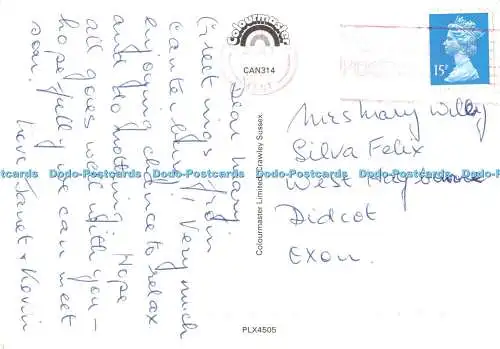 Dear Mary
Greetings from
Canterbury! Very much
enjoying chance to relax
and do nothing! Hope
all goes well with you –
hopefully we can meet
soon. Love Janet & Kevin
Colourmaster
CAN314
Colourmaster Limited, Crawley Sussex.
PLX4505
15P
Mrs Mary Willy
Silva Felix
West Hagbourne
Didcot
EXON.
Dodo-Postcards Dodo-Postcards Dodo-Postcards Dodo-Postcards Dodo-Postcards